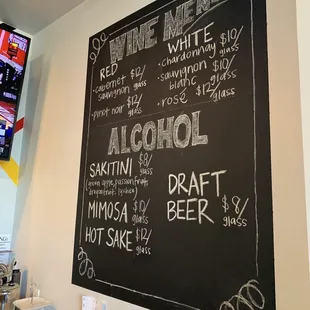 WINE MENU
RED
• cabernet $12/
sauvignon glass
• pinot noir $12/
glass
WHITE
• chardonnay $10/
glass
• sauvignon $10/
blanc glass
• rosé $12/
glass
ALCOHOL
SAKITINI $8/
glass
(green apple, passionfruit,
dragonfruit, lychee)
MIMOSA $10/
glass
HOT SAKE $12/
glass
DRAFT
BEER $8/
glass